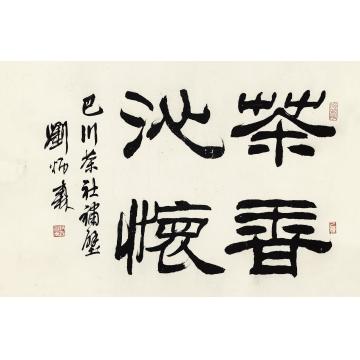 茶香
沁懷
巴川茶社補壁
劉炳森